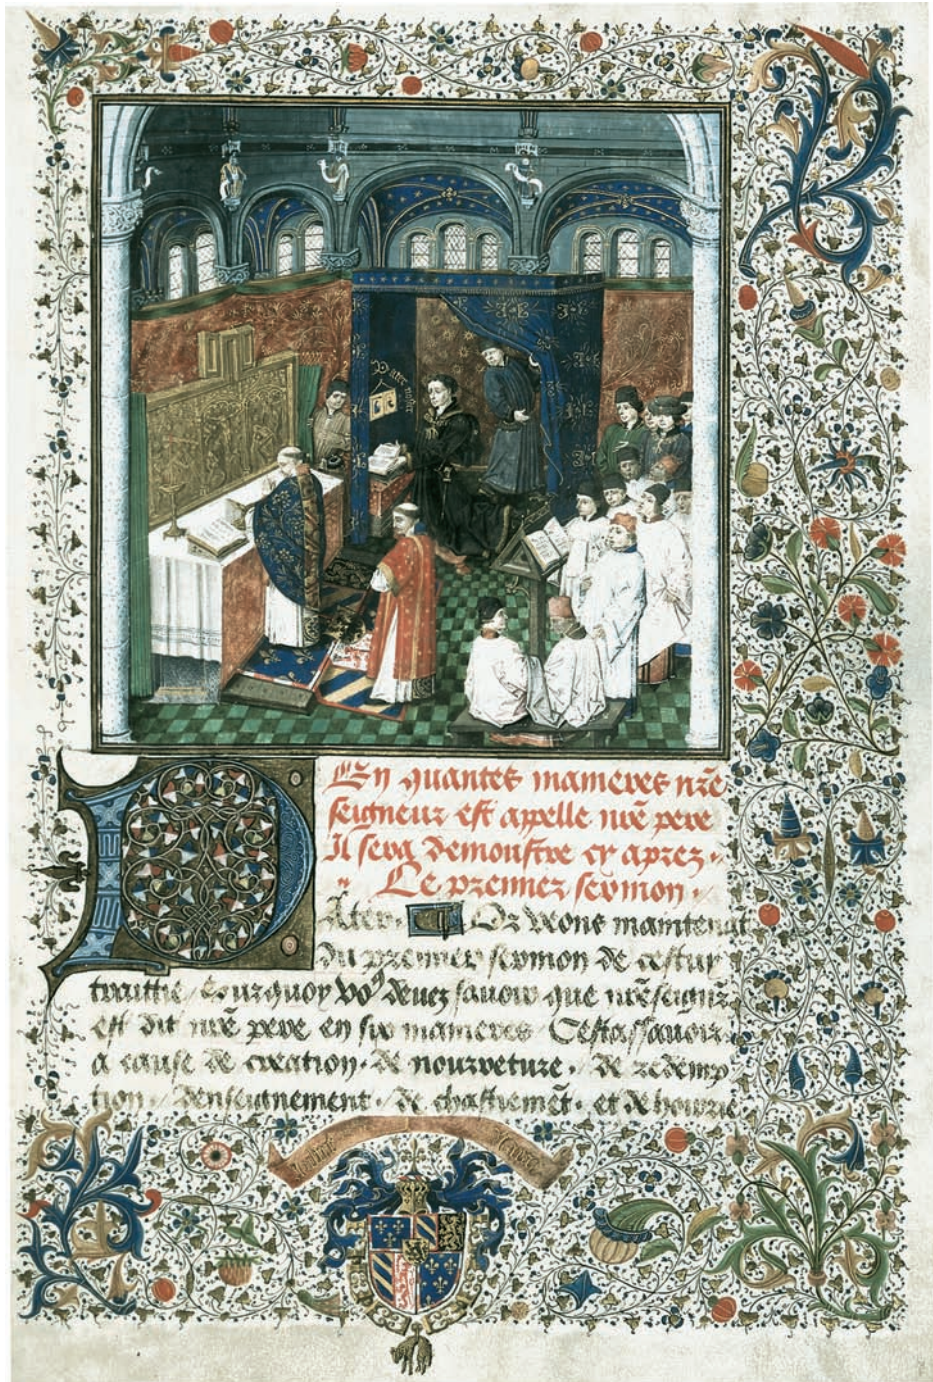 Pater noster
En quantes manieres nr̄e
seigneur est appelle nr̄e pere
Il sera demoustre cy aprez ·
Le premier sermon ·
PAter · Or dirons maintenāt
du premier sermon de cestui
traittie / Pourquoy voꝰ devez savoir que nr̄e seignr̄
est dit nr̄e pere en six manieres / Cestassavoir
a cause de creation · de nourreture · de redemp
tion / denseignement · de chastiemēt · et de